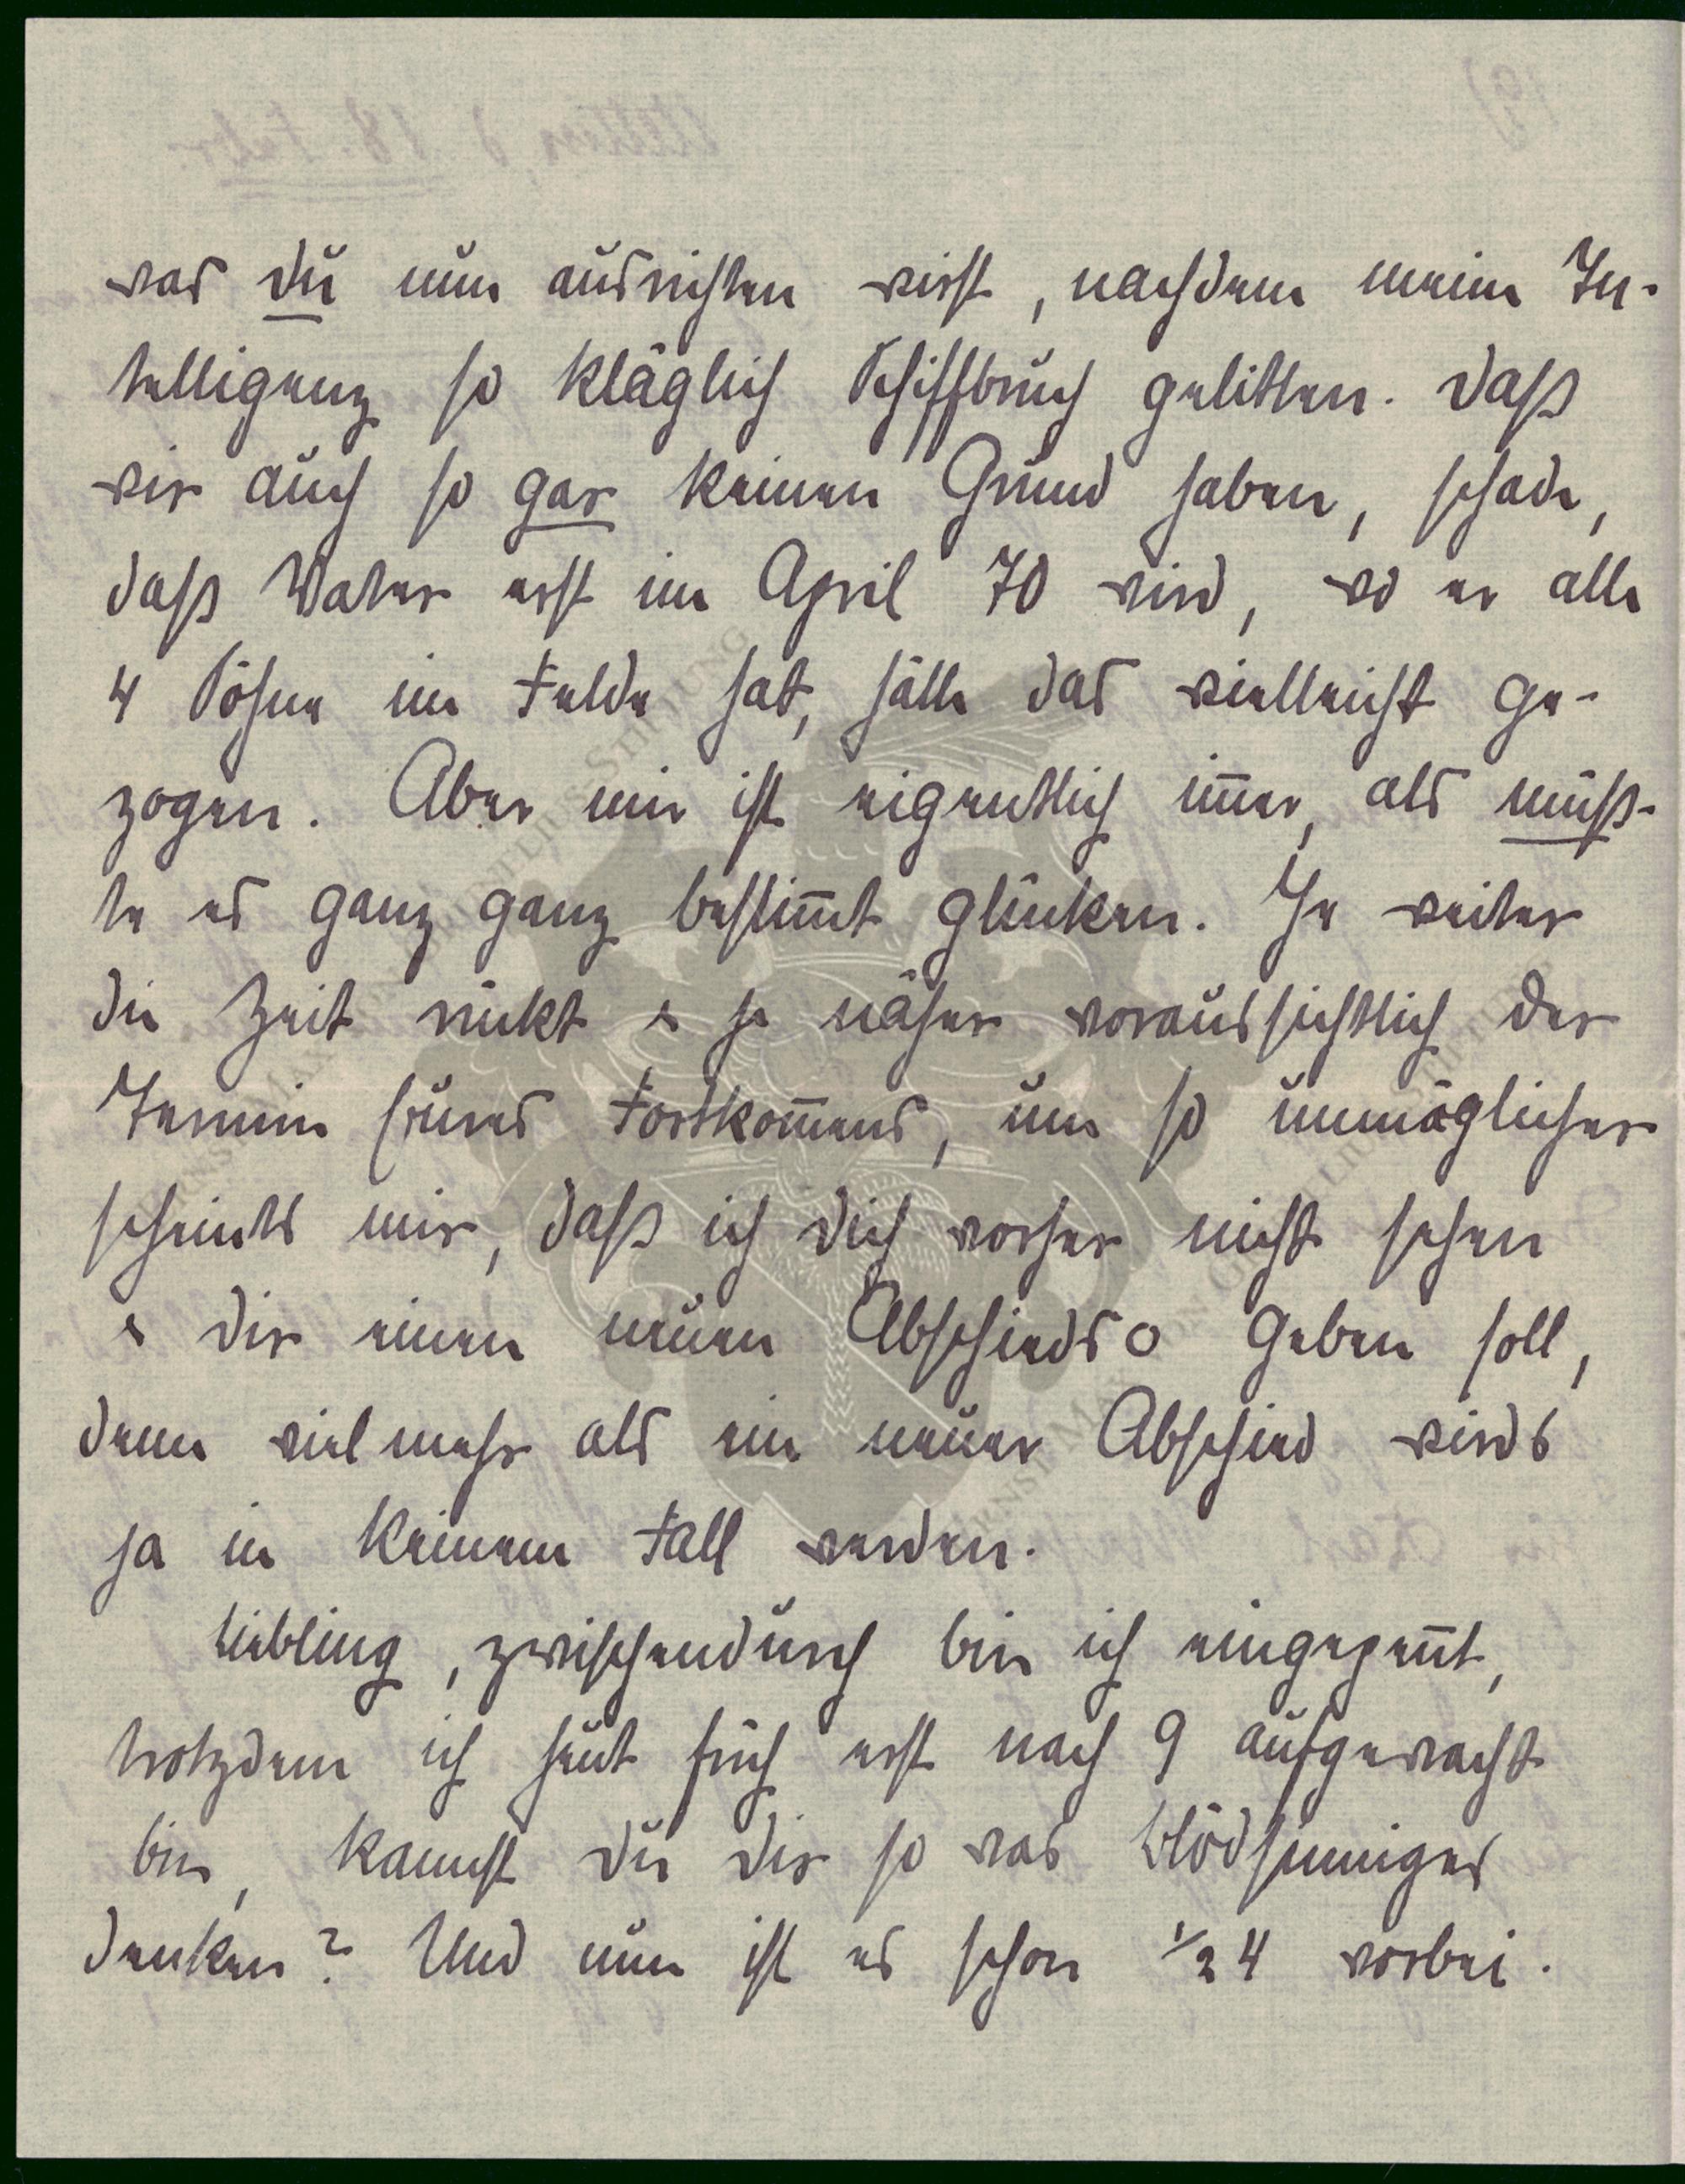 was du nun ausrichten wirst, nachdem meine In-
telligenz so kläglich Schiffbruch gelitten. Daß
wir auch so gar keinen Grund haben, schade,
daß Vater erst im April 70 wird, wo er alle
4 Söhne im Felde hat, hätte das vielleicht ge-
zogen. Aber mir ist eigentlich im̅er, als müß-
te es ganz ganz bestim̅t glücken. Je weiter
die Zeit rückt & je näher voraussichtlich der
Termin Eures Fortkom̅ens, um so unmöglicher
scheints mir, daß ich dich vorher nicht sehen
& dir einen neuen Abschieds o geben soll,
denn viel mehr als ein neuer Abschied wirds
ja in keinem Fall werden.
Liebling, zwischendurch bin ich eingepen̅t,
trotzdem ich heut früh erst nach 9 aufgewacht
bin, kannst du dir so was Blödsinniges
denken? Und nun ist es schon ½ 4 vorbei.